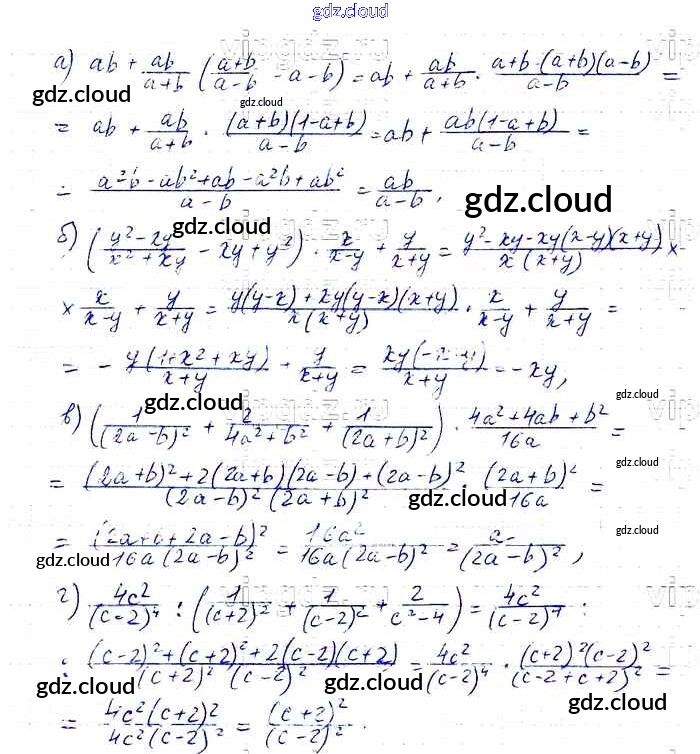 gdz.cloud
а) ab + ab/(a+b) ((a+b)/(a-b) - a - b) = ab + ab/(a+b) · (a+b-(a+b)(a-b))/(a-b) =
gdz.cloud gdz.cloud gdz.cloud
= ab + ab/(a+b) · ((a+b)(1-a+b))/(a-b) = ab + (ab(1-a+b))/(a-b) =
= (a²b - ab² + ab - a²b + ab²)/(a-b) = ab/(a-b),
gdz.cloud gdz.cloud
б) ((y²-xy)/(x²+xy) - xy + y²) · x/(x-y) + y/(x+y) = (y²-xy-xy(x-y)(x+y))/(x(x+y)) ×
× x/(x-y) + y/(x+y) = (y(y-x)+xy(y-x)(x+y))/(x(x+y)) · x/(x-y) + y/(x+y) =
= - (y(1+x²+xy))/(x+y) + y/(x+y) = (xy(-x-y))/(x+y) = -xy,
gdz.cloud gdz.cloud
в) (1/(2a-b)² + 2/(4a²+b²) + 1/(2a+b)²) · (4a²+4ab+b²)/16a =
gdz.cloud
= ((2a+b)²+2(2a+b)(2a-b)+(2a-b)²)/((2a-b)²(2a+b)²) · (2a+b)²/16a =
gdz.cloud gdz.cloud
= (2a+b+2a-b)²/(16a(2a-b)²) = 16a²/(16a(2a-b)²) = a/(2a-b)²,
gdz.cloud gdz.cloud
г) 4c²/(c-2)⁴ : (1/(c+2)² + 1/(c-2)² + 2/(c²-4)) = 4c²/(c-2)⁴ :
: ((c-2)²+(c+2)²+2(c-2)(c+2))/((c+2)²(c-2)²) = 4c²/(c-2)⁴ · ((c+2)²(c-2)²)/(c-2+c+2)² =
gdz.cloud gdz.cloud gdz.cloud
= (4c²(c+2)²)/(4c²(c-2)²) = (c+2)²/(c-2)².